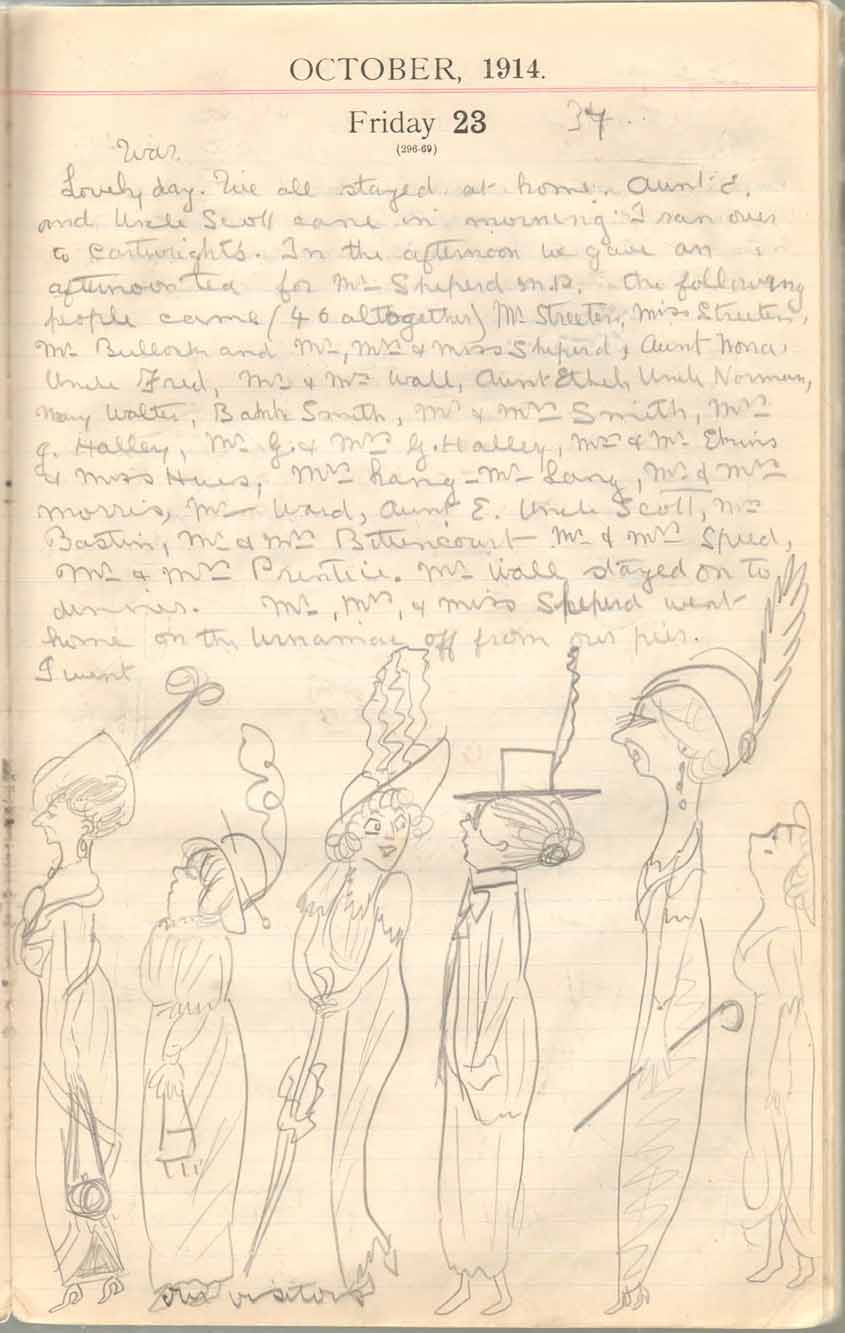 OCTOBER, 1914.
Friday 23 37
(296-69)
War.
Lovely day. We all stayed at home. Aunt E.
and Uncle Scott came in morning. I ran over
to Cartwrights. In the afternoon we gave an
afternoon tea for Mr Sheperd M.P. the following
people came (46 altogether) Mr Streeter, Miss Streeter,
Mr Bullock and Mr, Mrs & Miss Sheperd, Aunt Nona,
Uncle Fred, Mr & Mrs Wall, Aunt Ethel, Uncle Norman,
Mary Walter, Smith, Mr & Mrs Smith, Mrs
G. Halley, Mr G. & Mrs G. Halley, Mrs & Mr
& Miss Mrs Lang - Mr Lang, Mr & Mrs
Morris, Mr Ward, Aunt E. Uncle Scott,
Bastin, Mr & Mrs Bittencourt Mr & Mrs Speed,
Mr & Mrs Prentice. Mr Wall stayed on to
dinner. Mr, Mrs, & Miss Sheperd went
home on the off from our pier.
I went
our visitors